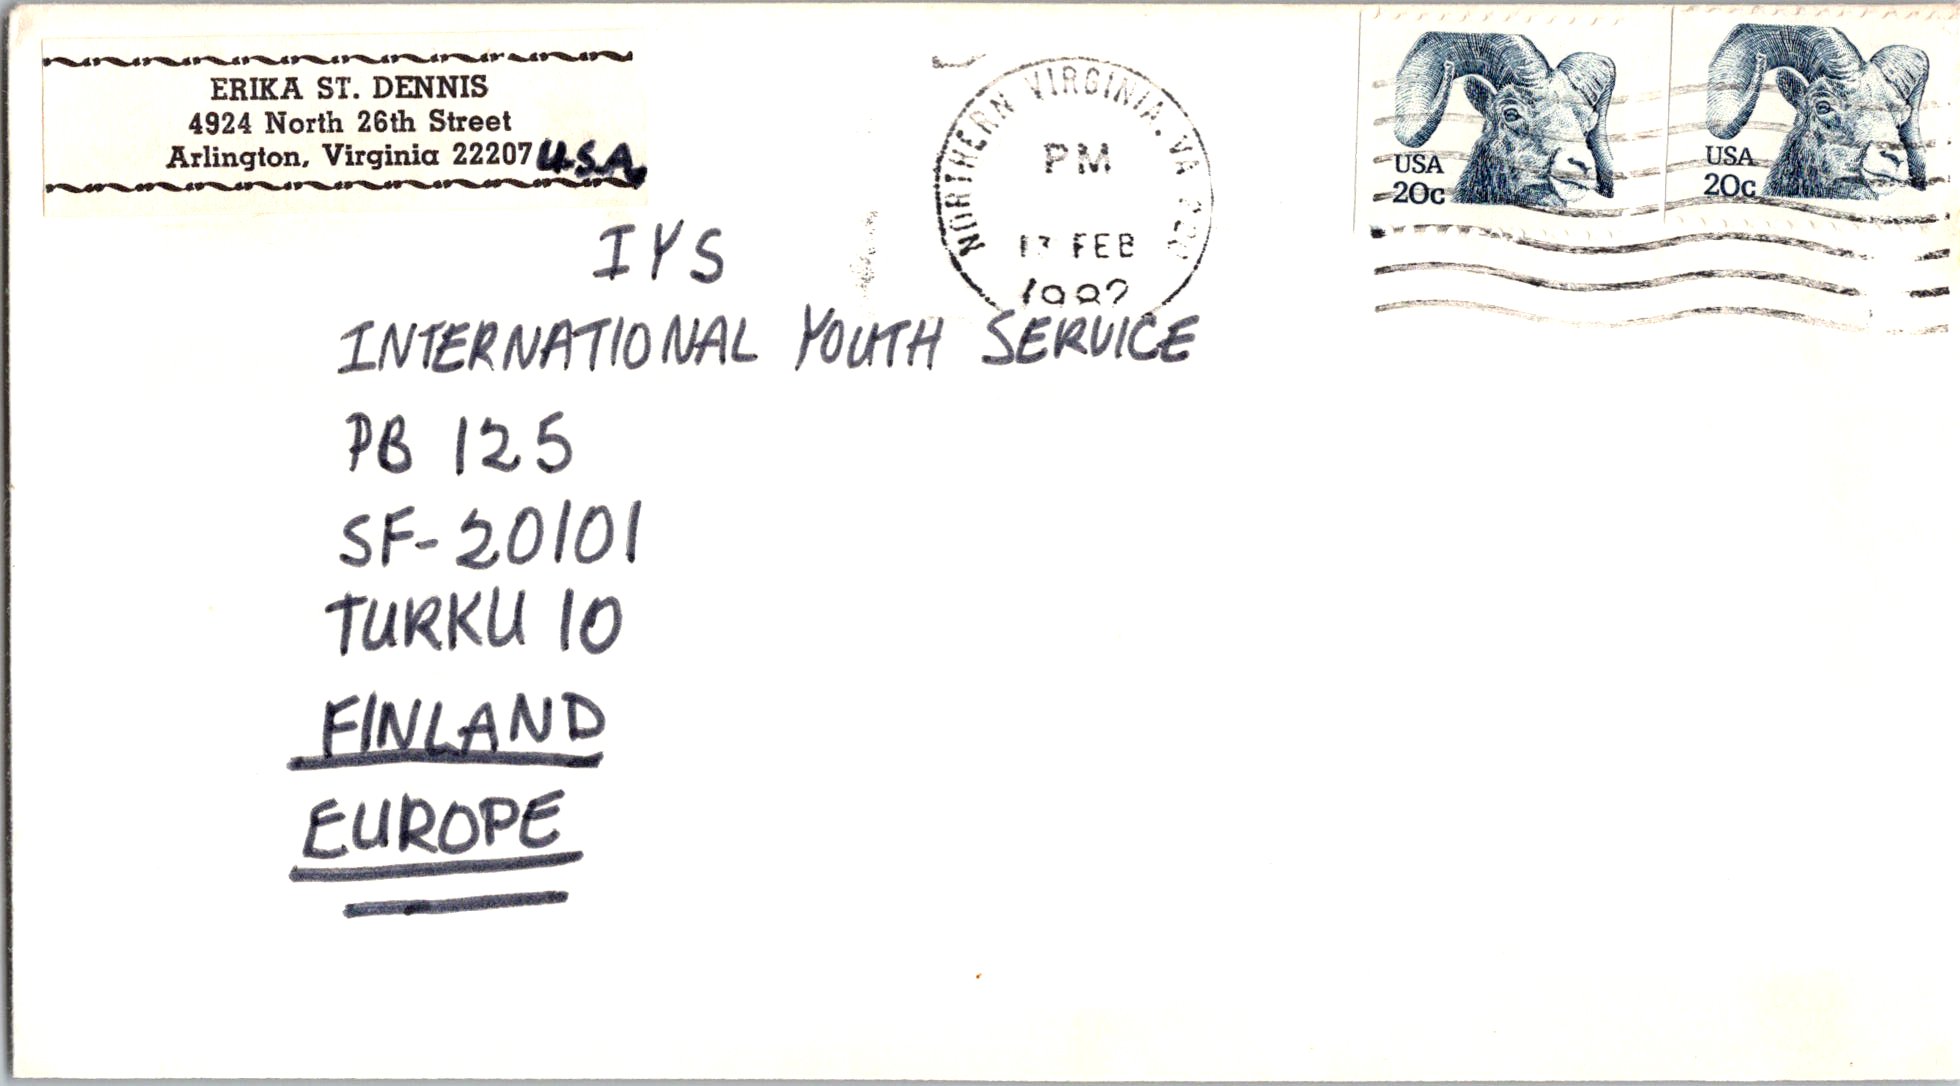 ERIKA ST. DENNIS
4924 North 26th Street
Arlington, Virginia 22207 U.S.A.
NORTHERN VIRGINIA. VA
PM
FEB
USA
20c
USA
20c
IYS
INTERNATIONAL YOUTH SERVICE
PB 125
SF-20101
TURKU 10
FINLAND
EUROPE